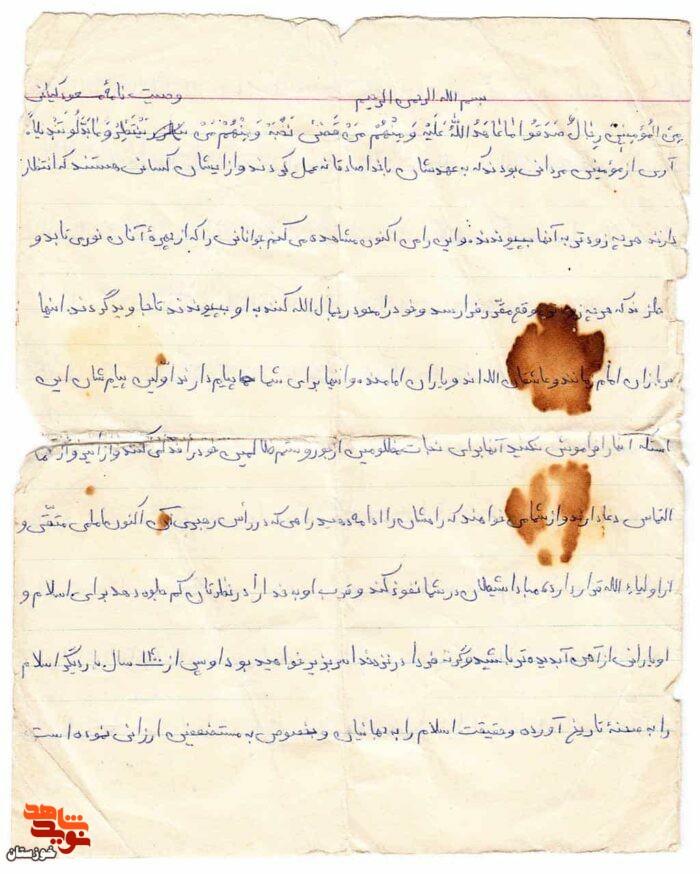 بسم الله الرحمن الرحیم وصیت نامهٔ مسعود کیانی
مِنَ المُؤمِنینَ رِجالٌ صَدَقُوا ما عاهَدُ اللهُ عَلَیْهِ وَ مِنْهُمْ مَنْ قَضیٰ نَحْبَهُ وَ مِنْهُمْ مَنْ یَنْتَظِرُ وَ ما بَدَّلُو تَبْدیلاً.
آری از مؤمنین مردانی بودند که به عهدشان با خدا صادقانه عمل کردند و از ایشان کسانی هستند که انتظار
دارند هر چه زودتر به آنها بپیوندند. و این را من اکنون مشاهده می کنم جوانانی را که از چهرهٔ آنان نوری تابد و
که هر چه موقع مقدّر فرا رسد و خود را محو در جمال الله کنند به او بپیوندند تا جاوید گردند. اینها
سربازان امام زمانند و عاشقان الله اند و یاران امامند. و اینها برای شما پیام دارند اوّلین پیام شان این
استکه آنها را فراموش نکنید آنها برای نجات مظلومین از جور و ستم ظالمین خود را فدا می کنند و از شما
التماس دعا دارند و از شما می خواهند که راهشان را ادامه دهید راهی که در رأس رهبری آن اکنون امامی متقّی و
از اولیاء الله قرار دارد. مبادا شیطان در شما نفوذ کند و قرب او به خدا را در نظرتان کم جلوه دهد برای اسلام و
او یارانی از آهن آبدیده تر باشید وگرنه فردا در نزد خدا سر بزیر خواهید بود او پس از ۱۴۰۰ سال بار دیگر اسلام
را به صحنهٔ تاریخ آورده و حقیقت اسلام را به جهانیان و بخصوص به مستضعفین ارزانی نموده است.
نوید شاهد
خوزستان